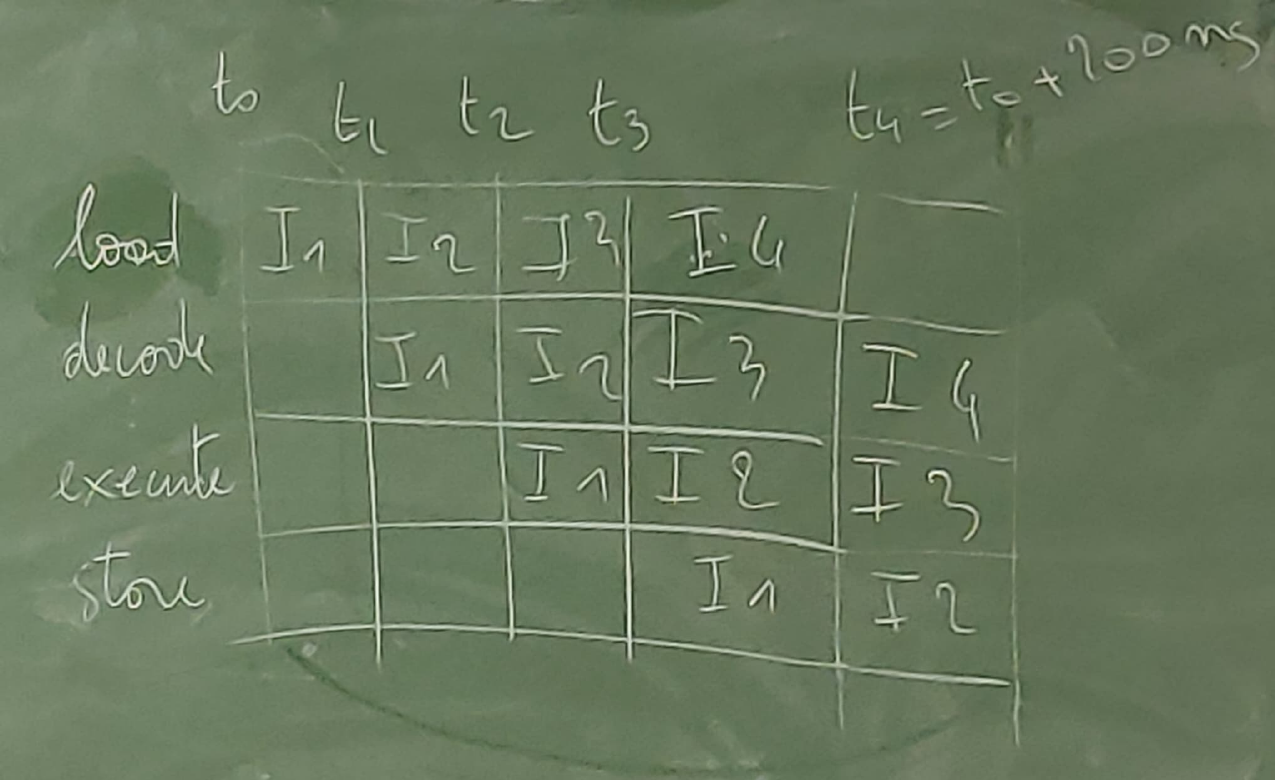 t0 t1 t2 t3 t4 = t0 + 200 ns
load I1 I2 I3 I4
decode I1 I2 I3 I4
execute I1 I2 I3
store I1 I2